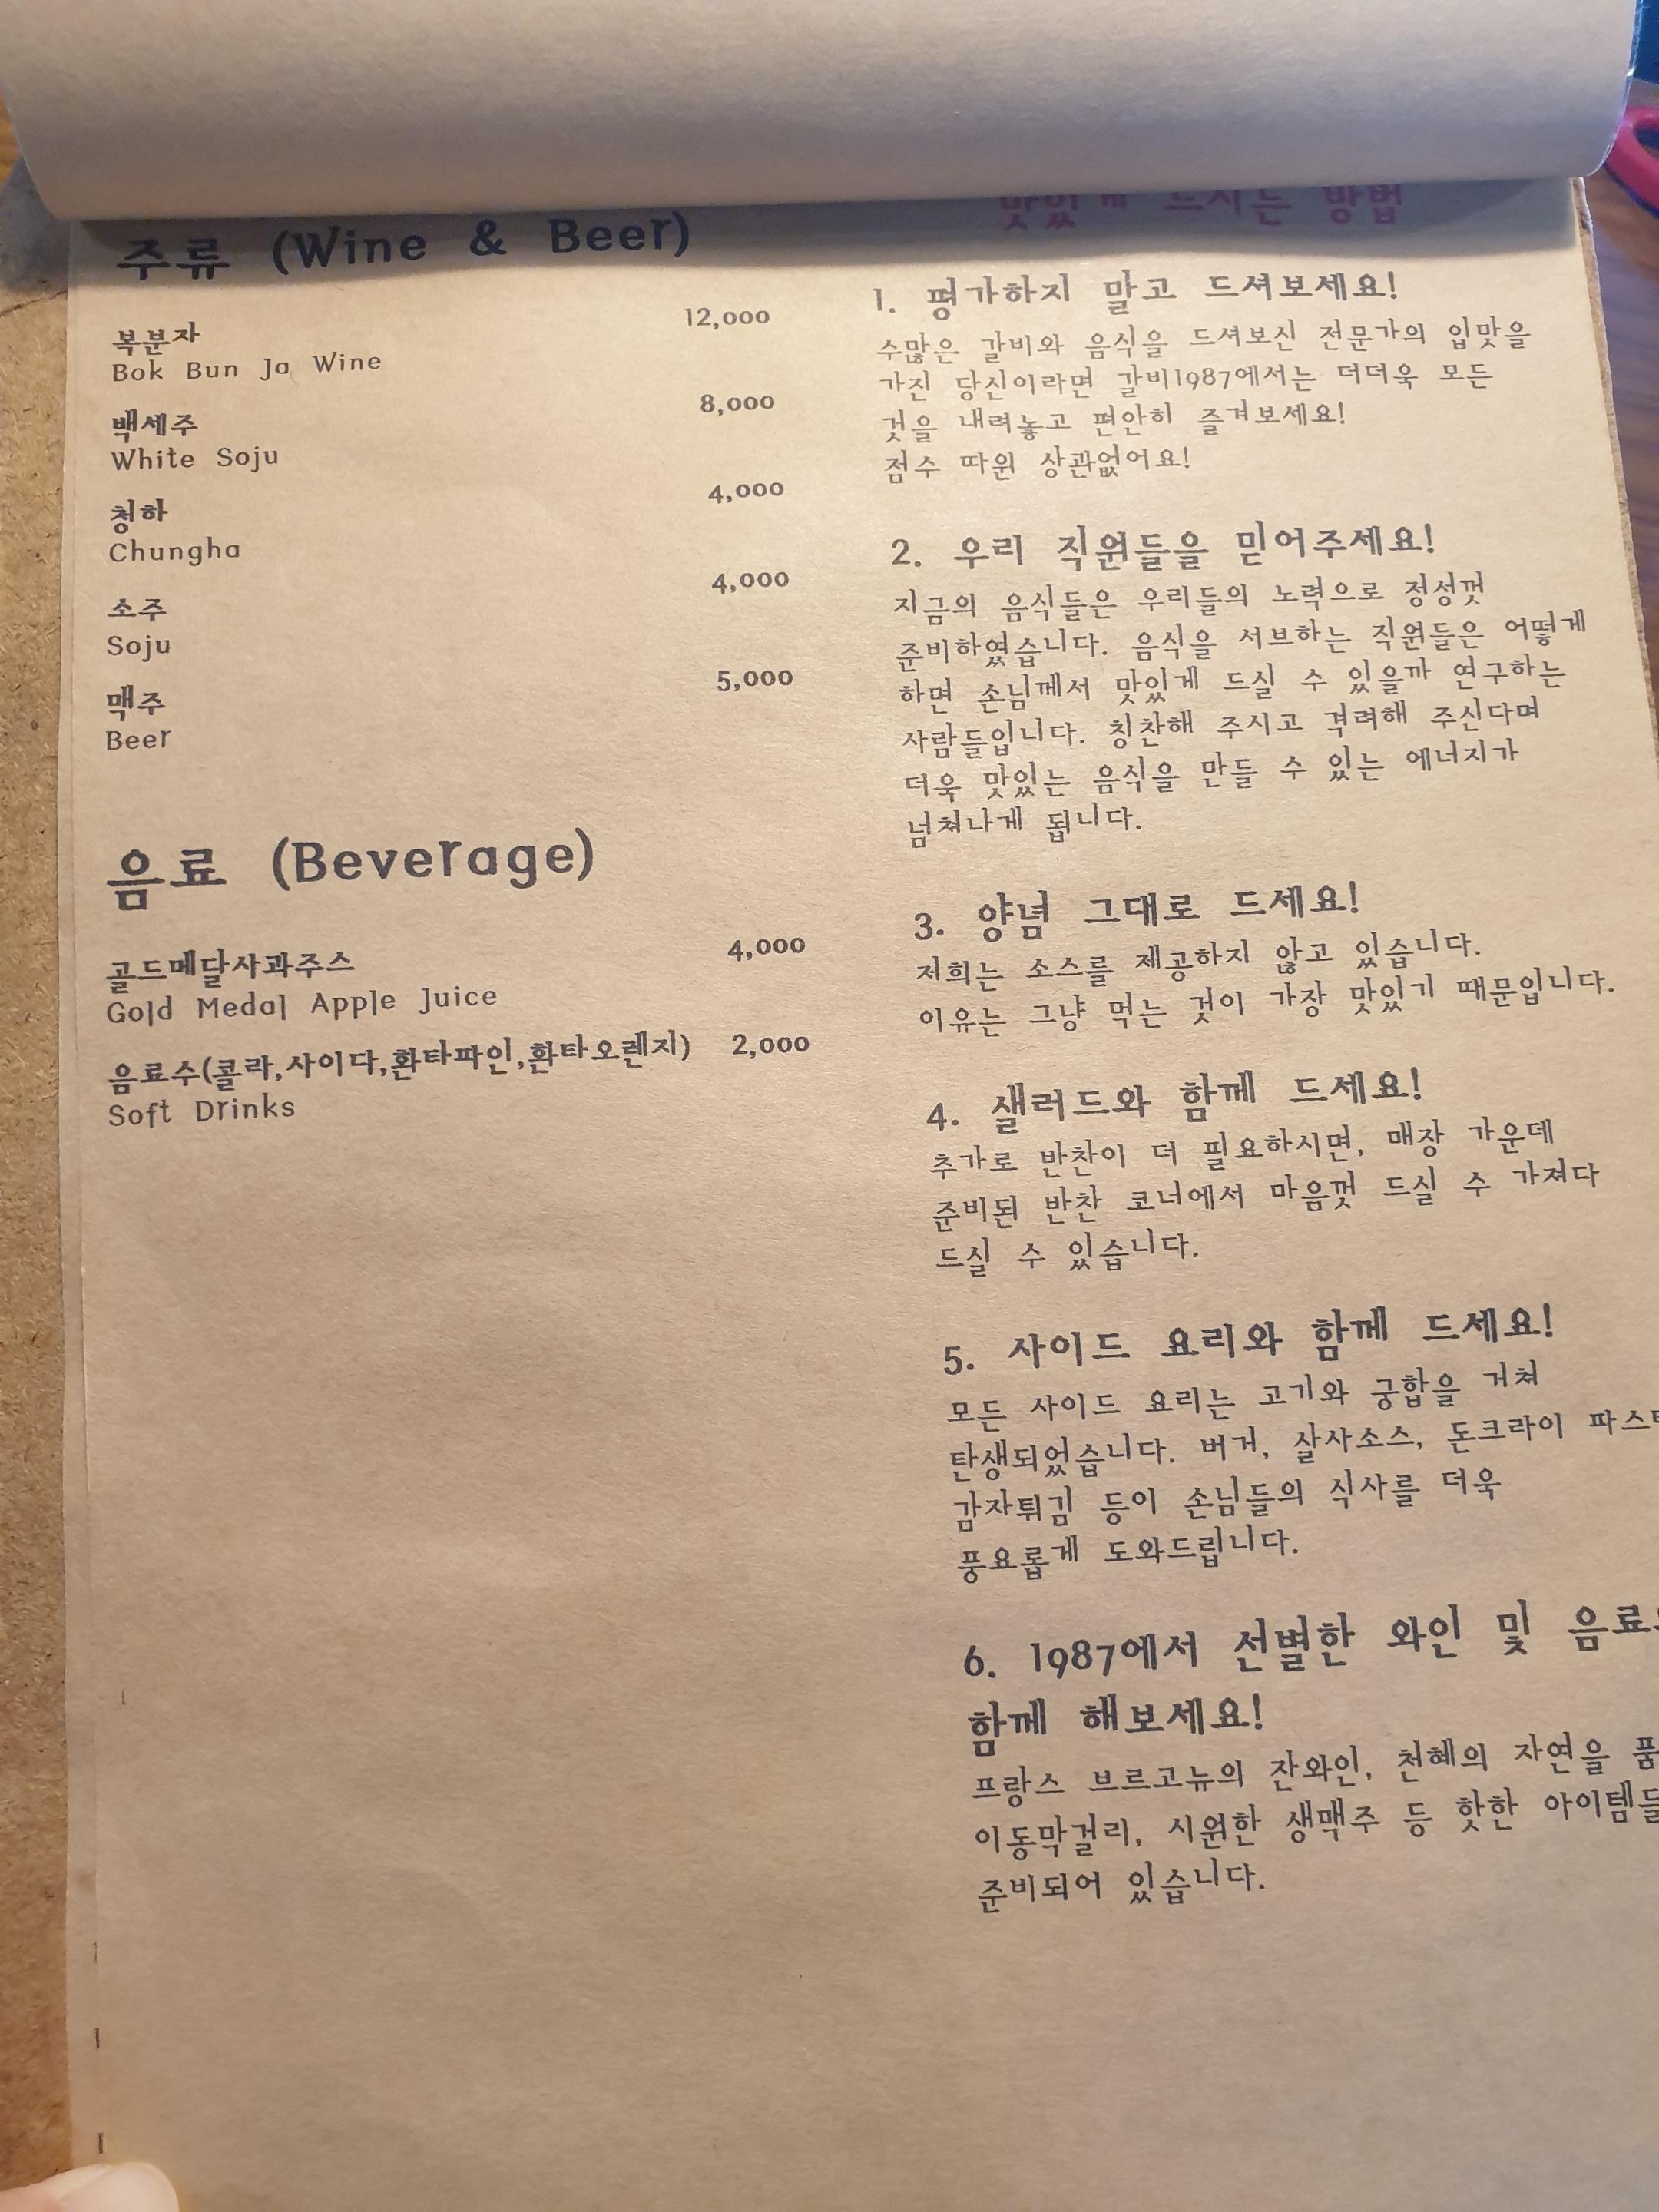 주류 (Wine & Beer)
복분자 12,000
Bok Bun Ja Wine
백세주 8,000
White Soju
청하 4,000
Chungha
소주 4,000
Soju
맥주 5,000
Beer
음료 (Beverage)
골드메달사과주스 4,000
Gold Medal Apple Juice
음료수(콜라,사이다,환타파인,환타오렌지) 2,000
Soft Drinks
맛있게 드시는 방법
1. 평가하지 말고 드셔보세요!
수많은 갈비와 음식을 드셔보신 전문가의 입맛을
가진 당신이라면 갈비1987에서는 더더욱 모든
것을 내려놓고 편안히 즐겨보세요!
점수 따윈 상관없어요!
2. 우리 직원들을 믿어주세요!
지금의 음식들은 우리들의 노력으로 정성껏
준비하였습니다. 음식을 서브하는 직원들은 어떻게
하면 손님께서 맛있게 드실 수 있을까 연구하는
사람들입니다. 칭찬해 주시고 격려해 주신다며
더욱 맛있는 음식을 만들 수 있는 에너지가
넘쳐나게 됩니다.
3. 양념 그대로 드세요!
저희는 소스를 제공하지 않고 있습니다.
이유는 그냥 먹는 것이 가장 맛있기 때문입니다.
4. 샐러드와 함께 드세요!
추가로 반찬이 더 필요하시면, 매장 가운데
준비된 반찬 코너에서 마음껏 드실 수 가져다
드실 수 있습니다.
5. 사이드 요리와 함께 드세요!
모든 사이드 요리는 고기와 궁합을 거쳐
탄생되었습니다. 버거, 살사소스, 돈크라이
감자튀김 등이 손님들의 식사를 더욱
풍요롭게 도와드립니다.
6. 1987에서 선별한 와인 및 음료
함께 해보세요!
프랑스 브르고뉴의 잔와인, 천혜의 자연을
이동막걸리, 시원한 생맥주 등 핫한 아이템들
준비되어 있습니다.